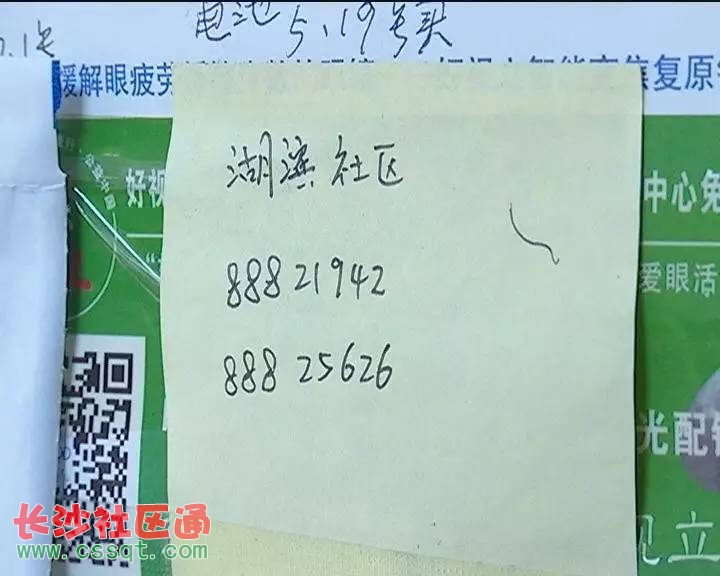 电池 5.19号买
.1号
缓解眼疲劳
焦复原
好视
中心免
爱眼活
湖滨社区
88821942
88825626
光配镜
见立
长沙社区通
www.cssqt.com